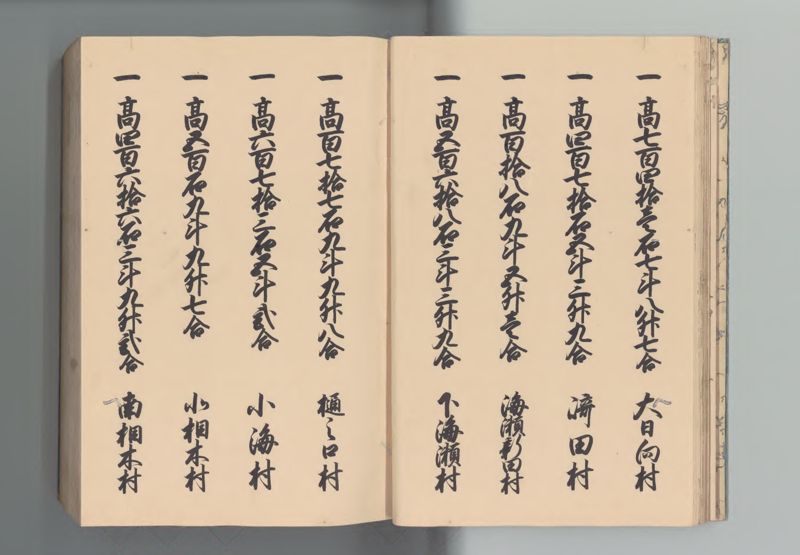 一 高七百四拾壱石七斗八升七合 大日向村
一 高四百七拾石五斗三升九合 田村
一 高百拾八石九斗五升壱合 海瀬新田村
一 高五百六拾八石三斗三升九合 下海瀬村
一 高百七拾七石九斗九升八合 樋之口村
一 高六百七拾三石五斗弐合 小海村
一 高五百石九斗九升七合 小相木村
一 高四百六拾六石三斗九升弐合 南相木村